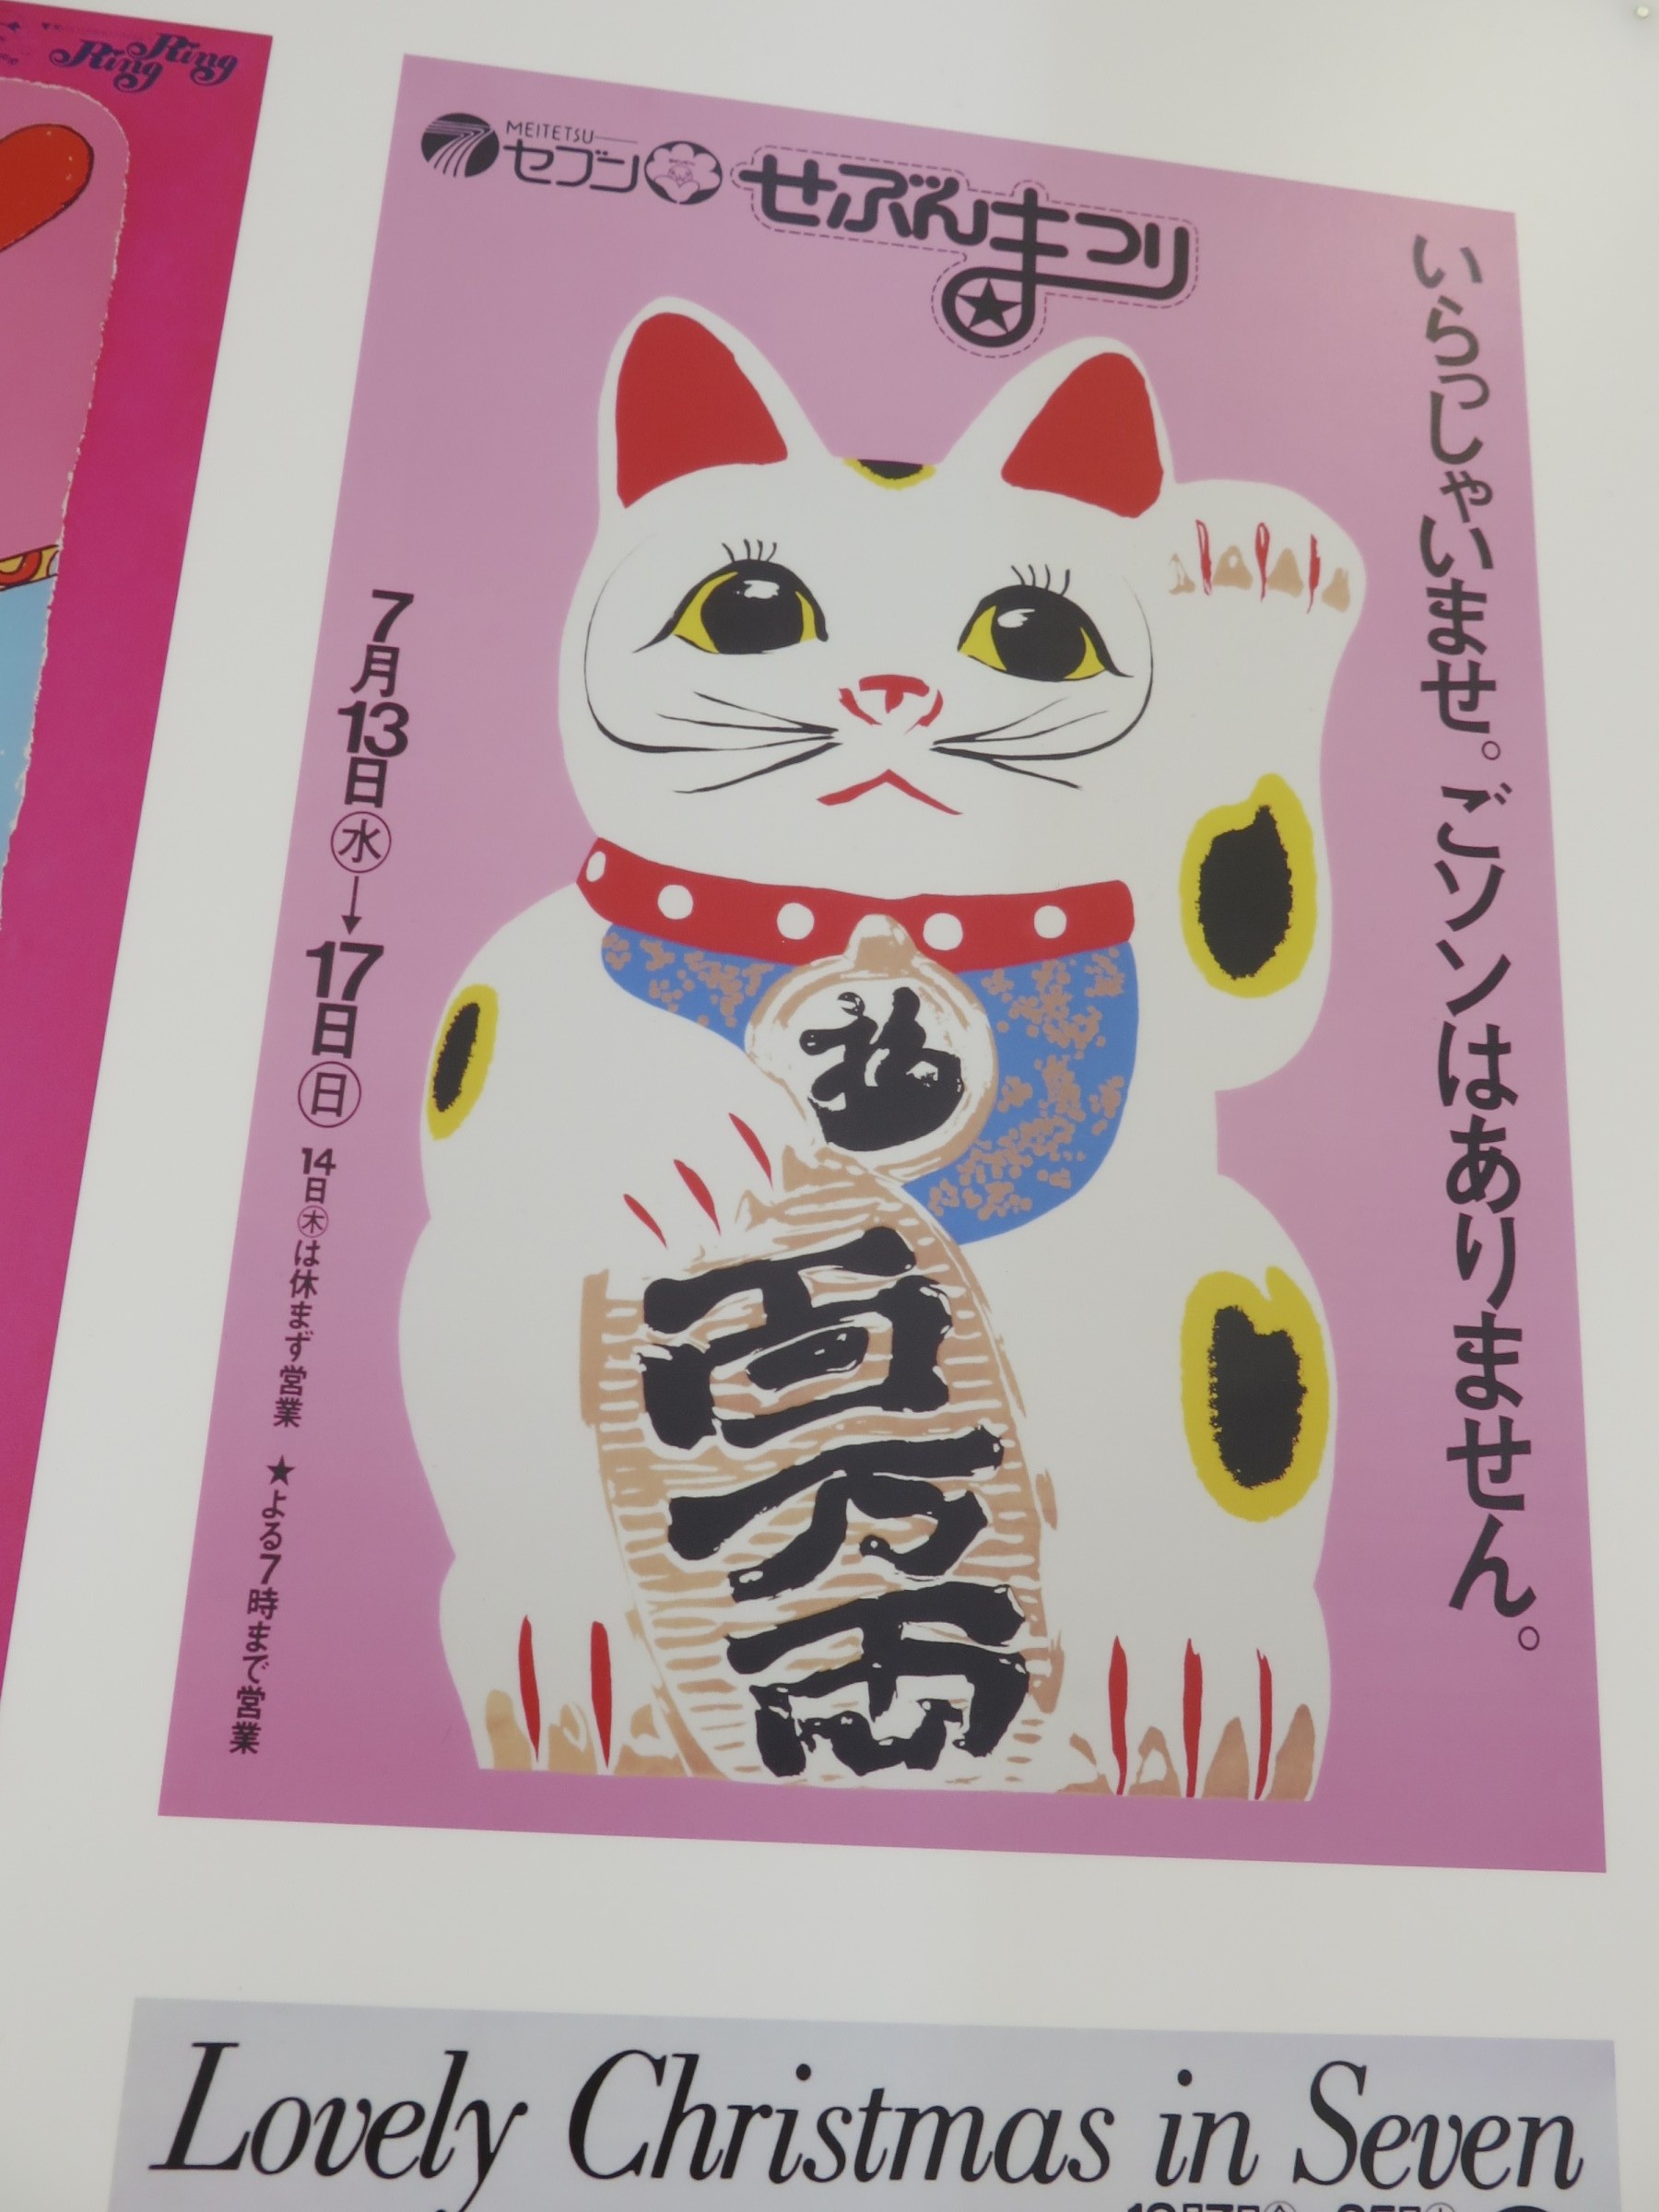 Ring Ring
MEITETSU
セブン
せぶんまつり
いらっしゃいませ。ごソンはありません。
7月13日㊌→17日㊐
14日㊍は休まず営業 ★よる7時まで営業
福
百万両
Lovely Christmas in Seven